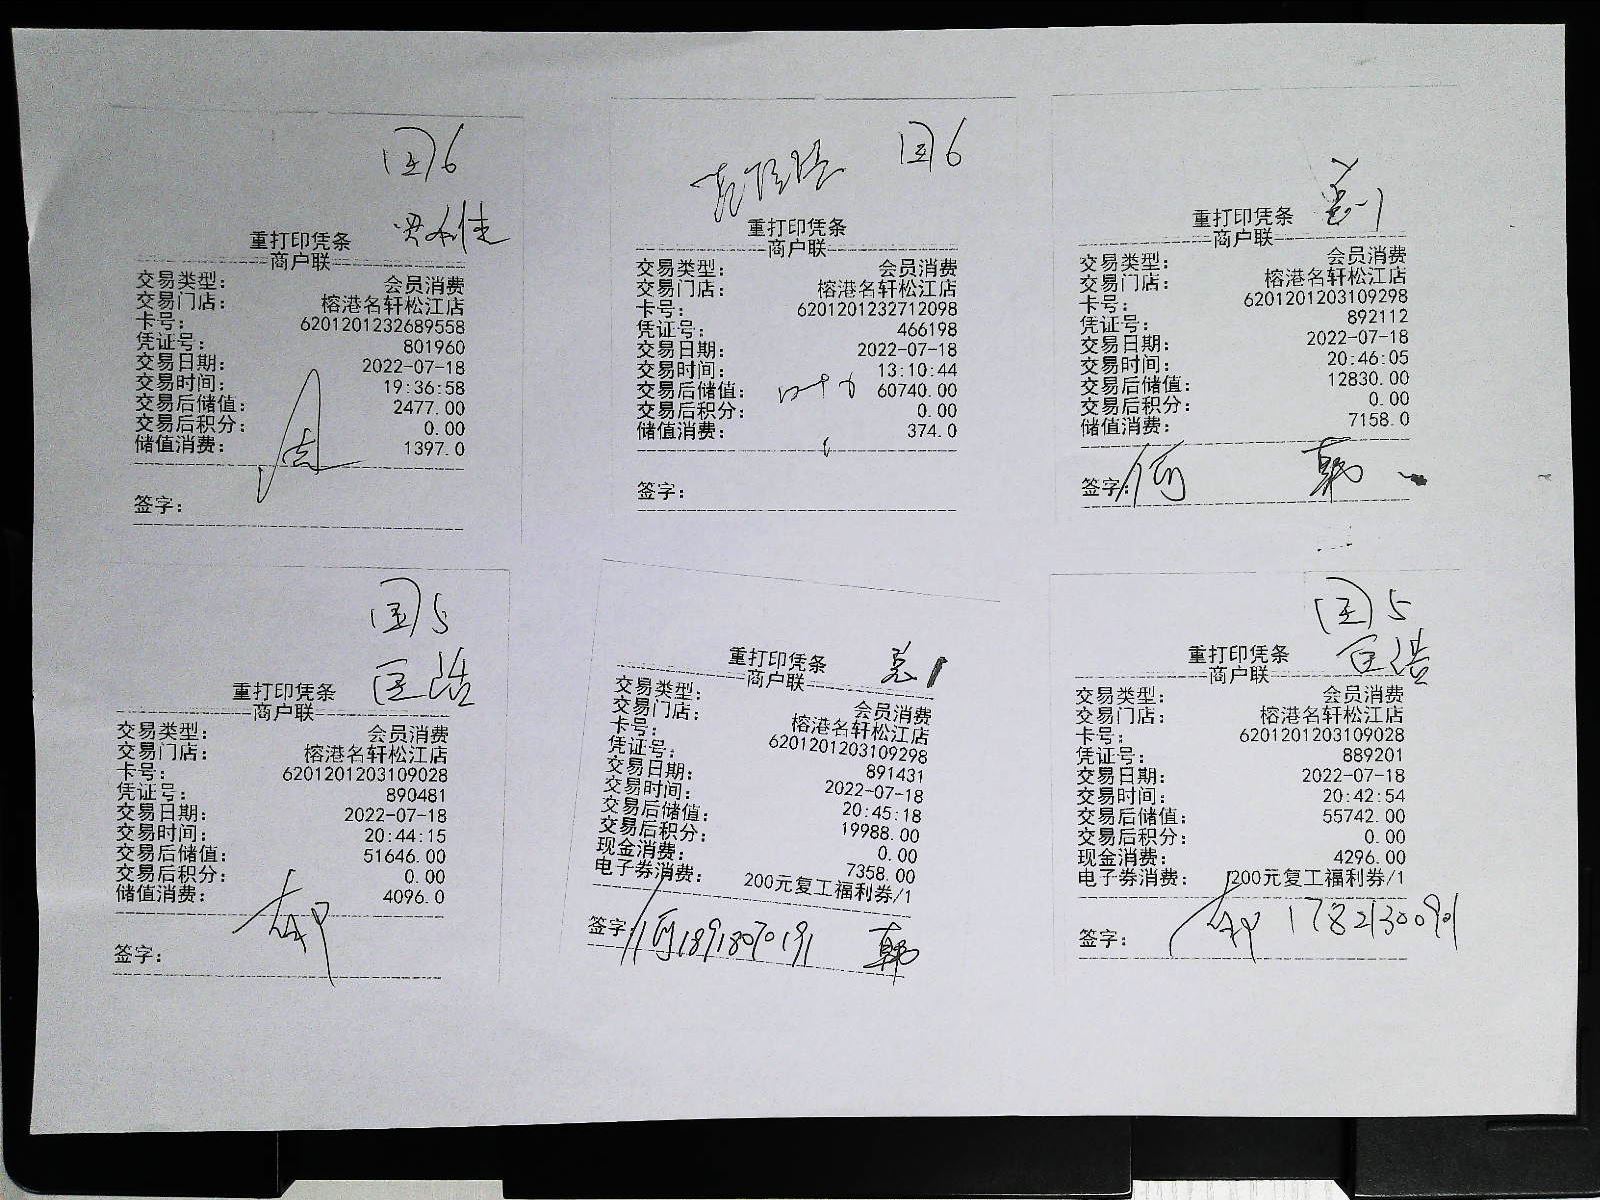 国6
重打印凭条
商户联
交易类型： 会员消费
交易门店： 榕港名轩松江店
卡号： 6201201232689558
凭证号： 801960
交易日期： 2022-07-18
交易时间： 19:36:58
交易后储值： 2477.00
交易后积分： 0.00
储值消费： 1397.0
签字：
国6
重打印凭条
商户联
交易类型： 会员消费
交易门店： 榕港名轩松江店
卡号： 6201201232712098
凭证号： 466198
交易日期： 2022-07-18
交易时间： 13:10:44
交易后储值： 60740.00
交易后积分： 0.00
储值消费： 374.0
签字：
重打印凭条
商户联
交易类型： 会员消费
交易门店： 榕港名轩松江店
卡号： 6201201203109298
凭证号： 892112
交易日期： 2022-07-18
交易时间： 20:46:05
交易后储值： 12830.00
交易后积分： 0.00
储值消费： 7158.0
签字： 何 韩
国5
匡浩
重打印凭条
商户联
交易类型： 会员消费
交易门店： 榕港名轩松江店
卡号： 6201201203109028
凭证号： 890481
交易日期： 2022-07-18
交易时间： 20:44:15
交易后储值： 51646.00
交易后积分： 0.00
储值消费： 4096.0
签字：
重打印凭条
商户联
交易类型： 会员消费
交易门店： 榕港名轩松江店
卡号： 6201201203109298
凭证号： 891431
交易日期： 2022-07-18
交易时间： 20:45:18
交易后储值： 19988.00
交易后积分： 0.00
现金消费： 7358.00
电子券消费： 200元复工福利券/1
签字： 何18918070191 韩
国5
匡浩
重打印凭条
商户联
交易类型： 会员消费
交易门店： 榕港名轩松江店
卡号： 6201201203109028
凭证号： 889201
交易日期： 2022-07-18
交易时间： 20:42:54
交易后储值： 55742.00
交易后积分： 0.00
现金消费： 4296.00
电子券消费： 200元复工福利券/1
签字： 17821300901